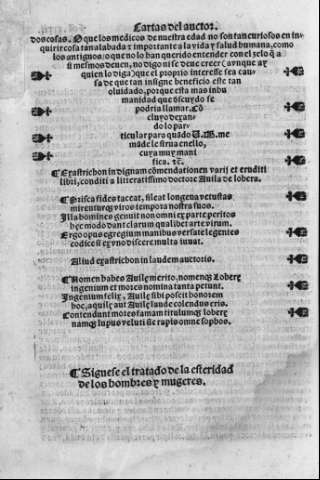 Cartas del auctor.
dos cosas. O que los medicos de nuestra edad no son tan curiosos en in
quirir cosa tan alabada e importante a la vida y salud humana, como
los antiguos: o que no lo han querido entender con el zelo q̃ a
si mesmos deuen, no digo ni se deue creer (aunque ay
quien lo diga) que el proprio interesse sea cau
sa de que tan insigne beneficio este tan
oluidado, porque esta mas inhu
manidad que descuydo se
podria llamar. Cõ
cluyo dexan-
do lo par-
ticular para quãdo U. M. me
mãde le sirua en ello,
cuya muy mani
fica. ꝛc̃.
¶ Exastrichon in dignam cõmendationem varij et eruditi
libri, conditi a litteratissimo doctore Auila de lobera.
¶ Prisca fides taceat, sileat longeua vetustas
mirenturq; viros tempora nostra suos.
Illa homines genuit non omni ex parte peritos
hec modo dant clarum qualibet arte virum.
Ergo opus egregium manibus versate legentes
codice si ex vno discere multa iuuat.
Aliud exastrichon in laudem auctoris.
¶ Nomen habes Auile merito, nomenq; Lobere
ingenium et mores nomina tanta petunt.
Ingenium felix, Auile sibi poscit honorem
hoc, aquile aut Auile laude colendus eris.
Contendunt mores famam titulumq; lobere
namq; lupus veluti sic rapis omne sophos.
¶ Siguese el tratado de la esteridad
de los hombres y mugeres.